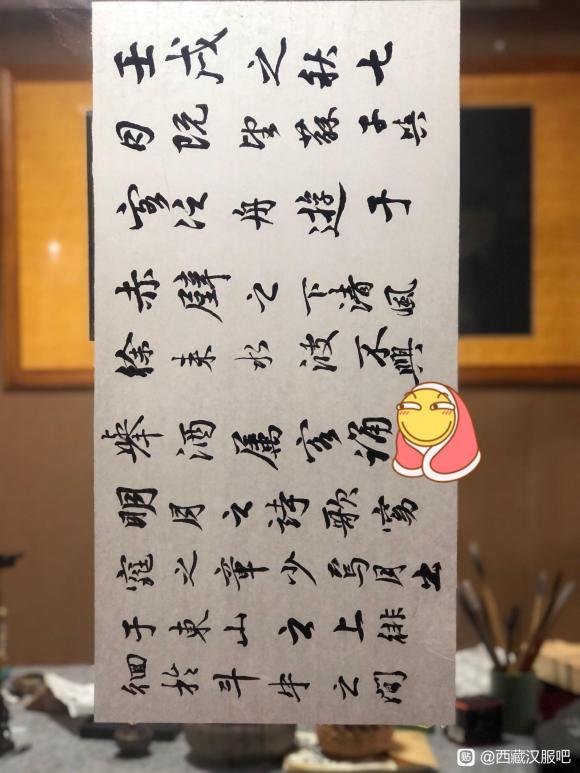 壬戌之秋七
月既望蘇子與
客泛舟遊于
赤壁之下清風
徐来水波不興
舉酒属客誦
明月之詩歌窈
窕之章少焉月出
于東山之上徘
徊於斗牛之間
贴 @西藏汉服吧